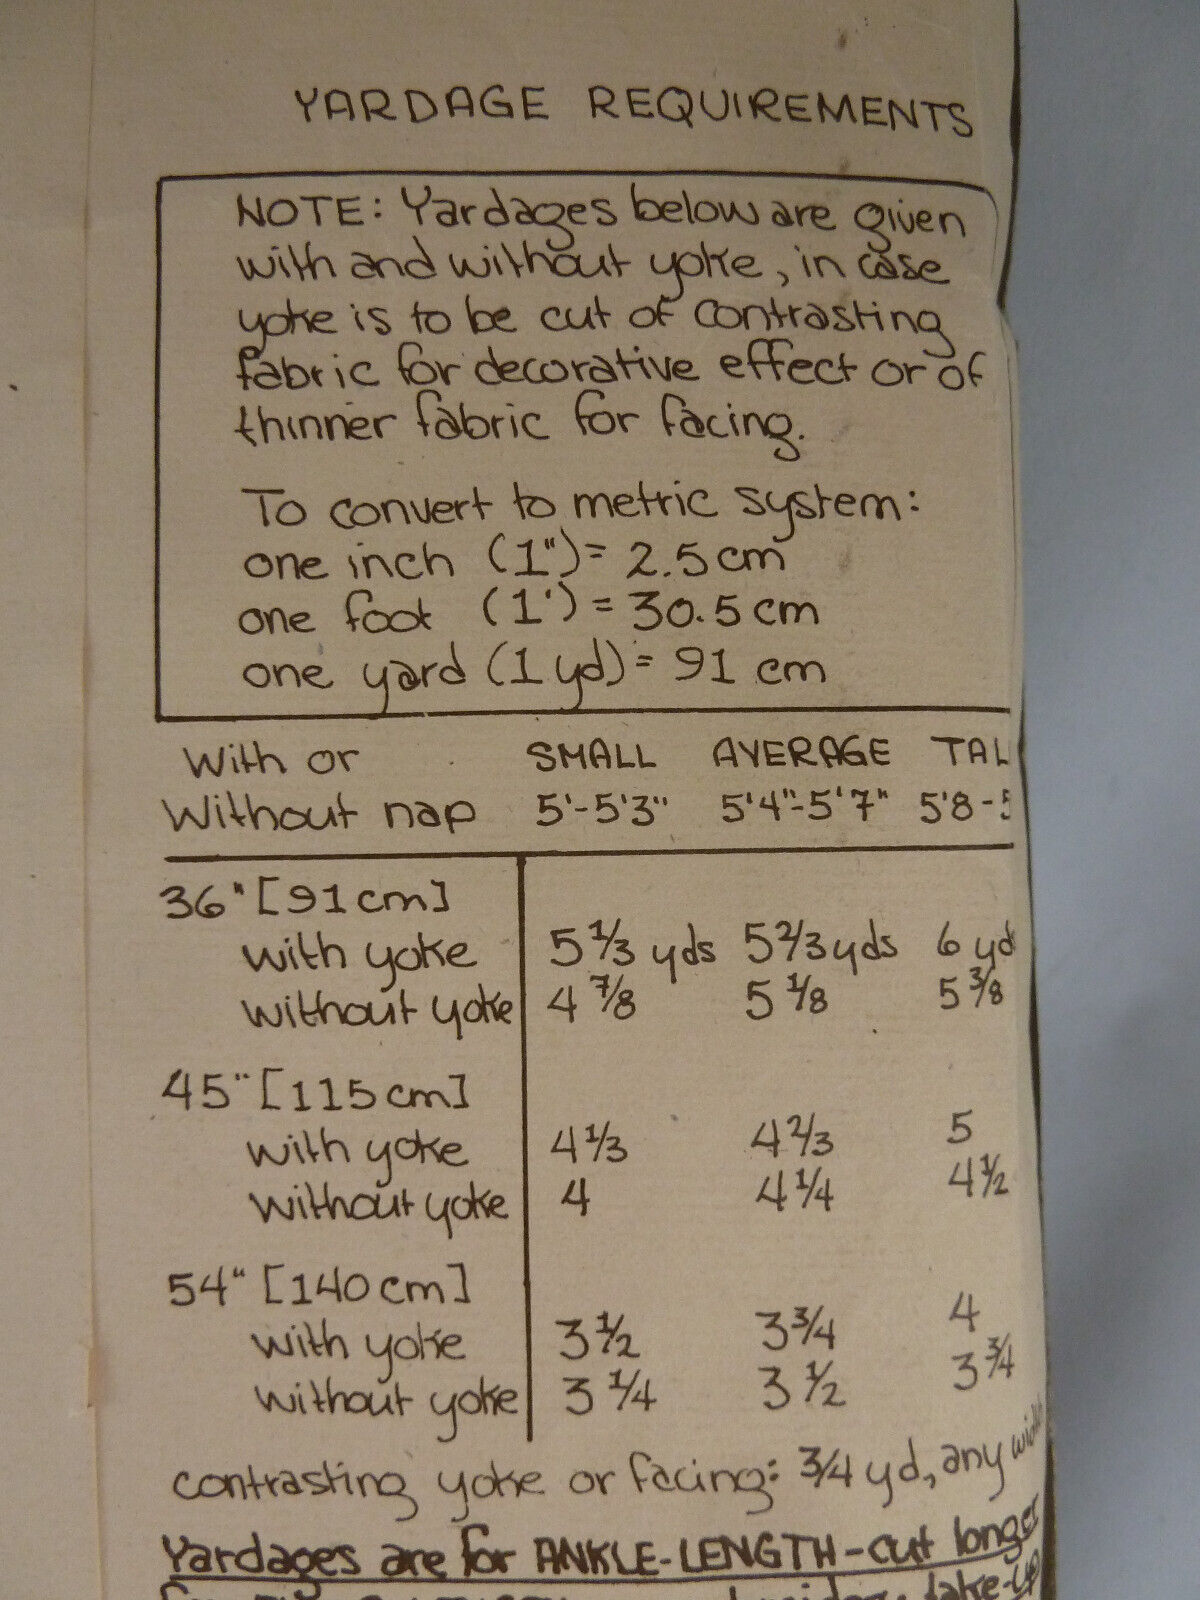 YARDAGE REQUIREMENTS
NOTE: Yardages below are given
with and without yoke, in case
yoke is to be cut of contrasting
fabric for decorative effect or of
thinner fabric for facing.
To convert to metric system:
one inch (1") = 2.5 cm
one foot (1') = 30.5 cm
one yard (1 yd) = 91 cm
With or SMALL AVERAGE TAL
Without nap 5'-5'3" 5'4"-5'7" 5'8-5
36" [91cm]
with yoke 5 1/3 yds 5 2/3 yds 6 yd
without yoke 4 7/8 5 1/8 5 3/8
45" [115cm]
with yoke 4 1/3 4 2/3 5
without yoke 4 4 1/4 4 1/2
54" [140cm]
with yoke 3 1/2 3 3/4 4
without yoke 3 1/4 3 1/2 3 3/4
contrasting yoke or facing: 3/4 yd, any width
Yardages are for ANKLE-LENGTH-cut longer
take-up